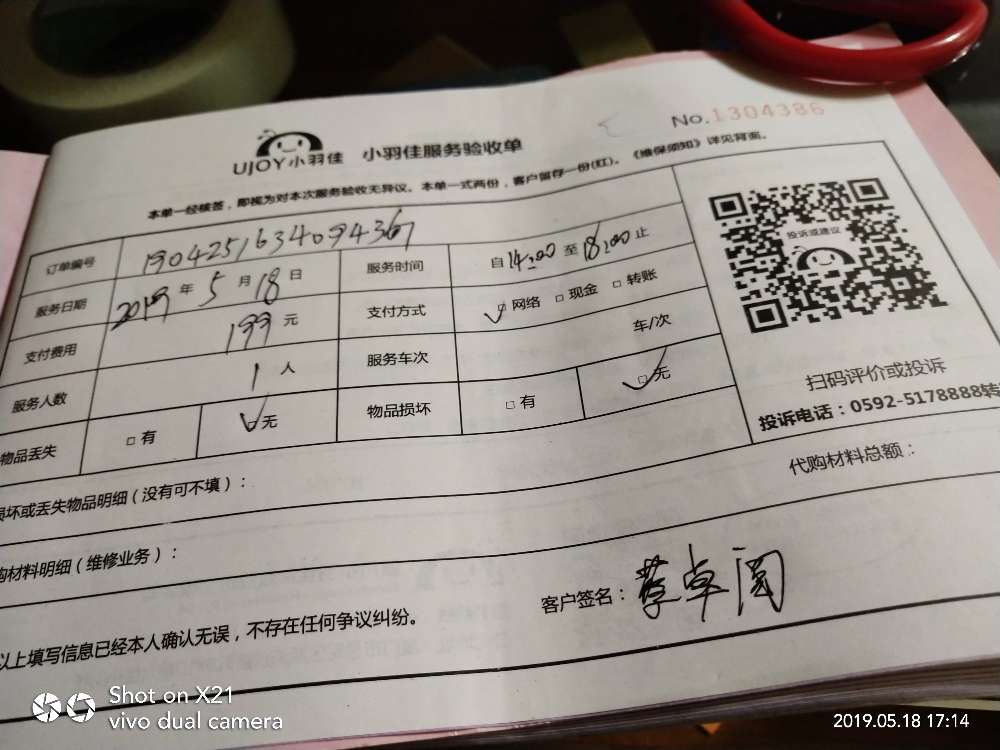 No.1304386
UJOY小羽佳 小羽佳服务验收单
本单一经核签，即视为对本次服务验收无异议。本单一式两份，客户留存一份(红)。《维保须知》详见背面。
订单编号 1904251634094367
服务日期 2019年5月18日 服务时间 自14:00至18:00止
支付费用 199元 支付方式 ☑网络 □现金 □转账
服务人数 1人 服务车次 车/次
物品丢失 □有 ☑无 物品损坏 □有 ☑无
投诉或建议
扫码评价或投诉
投诉电话：0592-5178888转
损坏或丢失物品明细（没有可不填）：
代购材料总额：
购材料明细（维修业务）：
以上填写信息已经本人确认无误，不存在任何争议纠纷。
客户签名：蔡卓
Shot on X21
vivo dual camera
2019.05.18 17:14